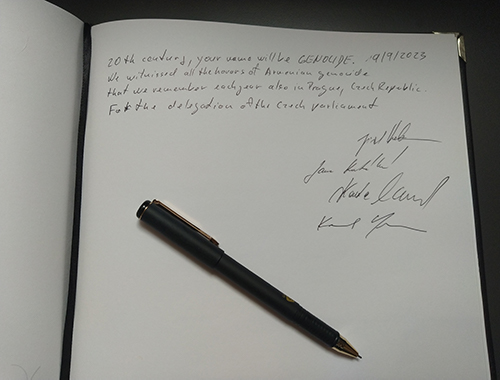 20th century, your name will be GENOCIDE. 19/9/2023
We witnessed all the horrors of Armenian genocide
that we remember each year also in Prague, Czech Republic.
For the delegation of the Czech parliament